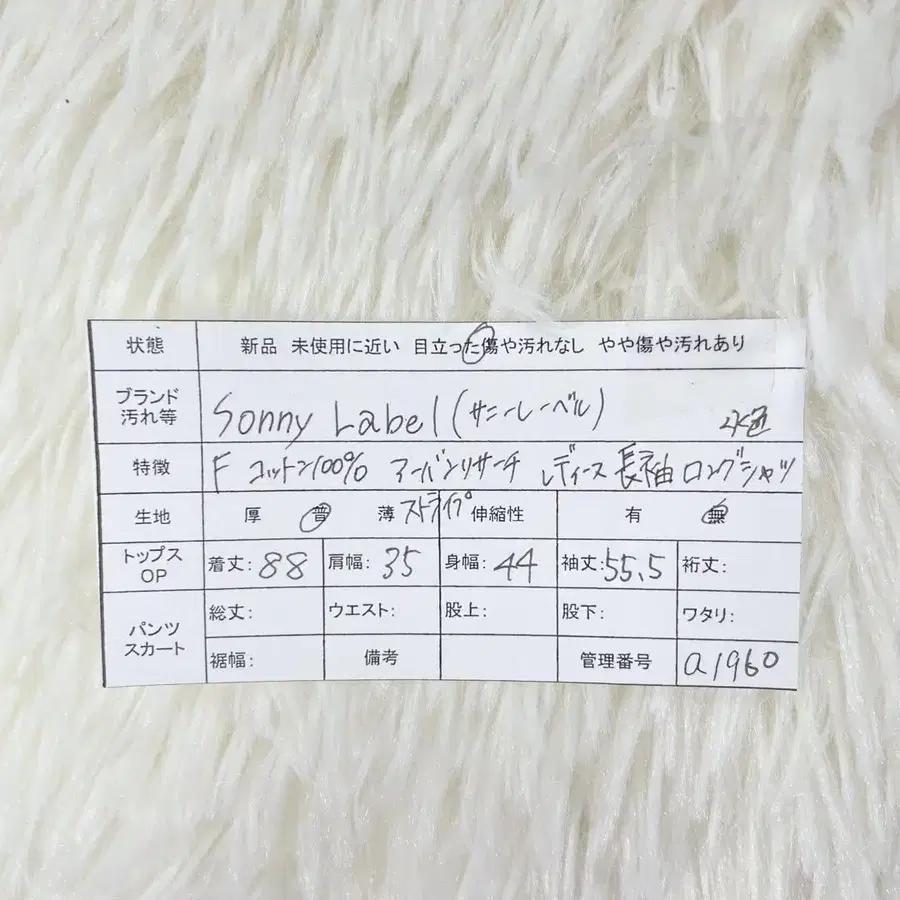 状態 新品 未使用に近い 目立った傷や汚れなし やや傷や汚れあり
ブランド
汚れ等 Sonny Label (サニーレーベル) 水色
特徴 F コットン100% アーバンリサーチ レディース 長袖 ロングシャツ
生地 厚 普 薄 ストライプ 伸縮性 有 無
トップス
OP 着丈: 88 肩幅: 35 身幅: 44 袖丈: 55.5 裄丈:
パンツ
スカート 総丈: ウエスト: 股上: 股下: ワタリ:
裾幅: 備考 管理番号 a1960